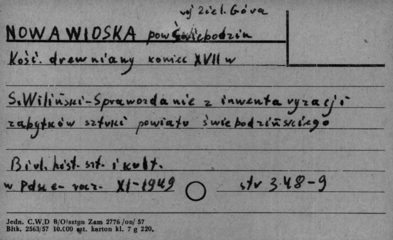 woj Ziel. Góra
NOWAWIOSKA pow Świebodzin
Kość. drewniany koniec XVII w
S. Wiliński - Sprawozdanie z inwentaryzacji
zabytków sztuki powiatu świebodzińskiego
Biul. hist. szt. i kult.
w Polsce - rocz. XI-1949 str 348-9
Jedn. C.W.D 8/Olsztyn Zam 2776/ou/57
Bltk. 2563/57 10.000 szt. karton kl. 7 g 220.